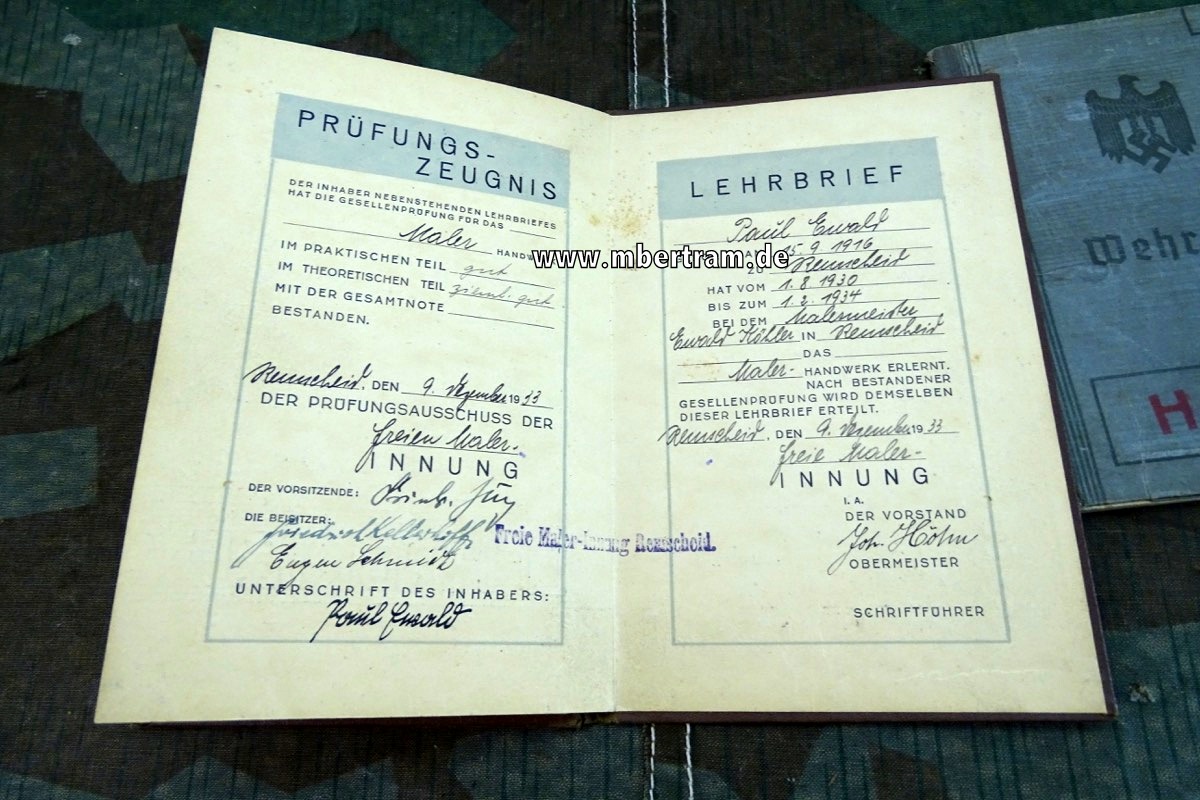 PRÜFUNGS-
ZEUGNIS
DER INHABER NEBENSTEHENDEN LEHRBRIEFES
HAT DIE GESELLENPRÜFUNG FÜR DAS
Maler HANDW
IM PRAKTISCHEN TEIL gut
IM THEORETISCHEN TEIL zieml. gut
MIT DER GESAMTNOTE
BESTANDEN.
Remscheid, DEN 9. Dezember 1933
DER PRÜFUNGSAUSSCHUSS DER
freien Maler-
INNUNG
DER VORSITZENDE:
DIE BEISITZER:
Eugen Schmidt
UNTERSCHRIFT DES INHABERS:
Paul Ewald
www.mbertram.de
Freie Maler-Innung Remscheid.
LEHRBRIEF
Paul Ewald
15.9.1916
ZU Remscheid
HAT VOM 1.8 1930
BIS ZUM 1.2.1934
BEI DEM Malermeister
Ewald Köhler IN Remscheid
DAS
Maler- HANDWERK ERLERNT.
NACH BESTANDENER
GESELLENPRÜFUNG WIRD DEMSELBEN
DIESER LEHRBRIEF ERTEILT.
Remscheid, DEN 9. Dezember 1933
freie Maler-
INNUNG
I. A.
DER VORSTAND
Joh. Höhn
OBERMEISTER
SCHRIFTFÜHRER
Wehr
H